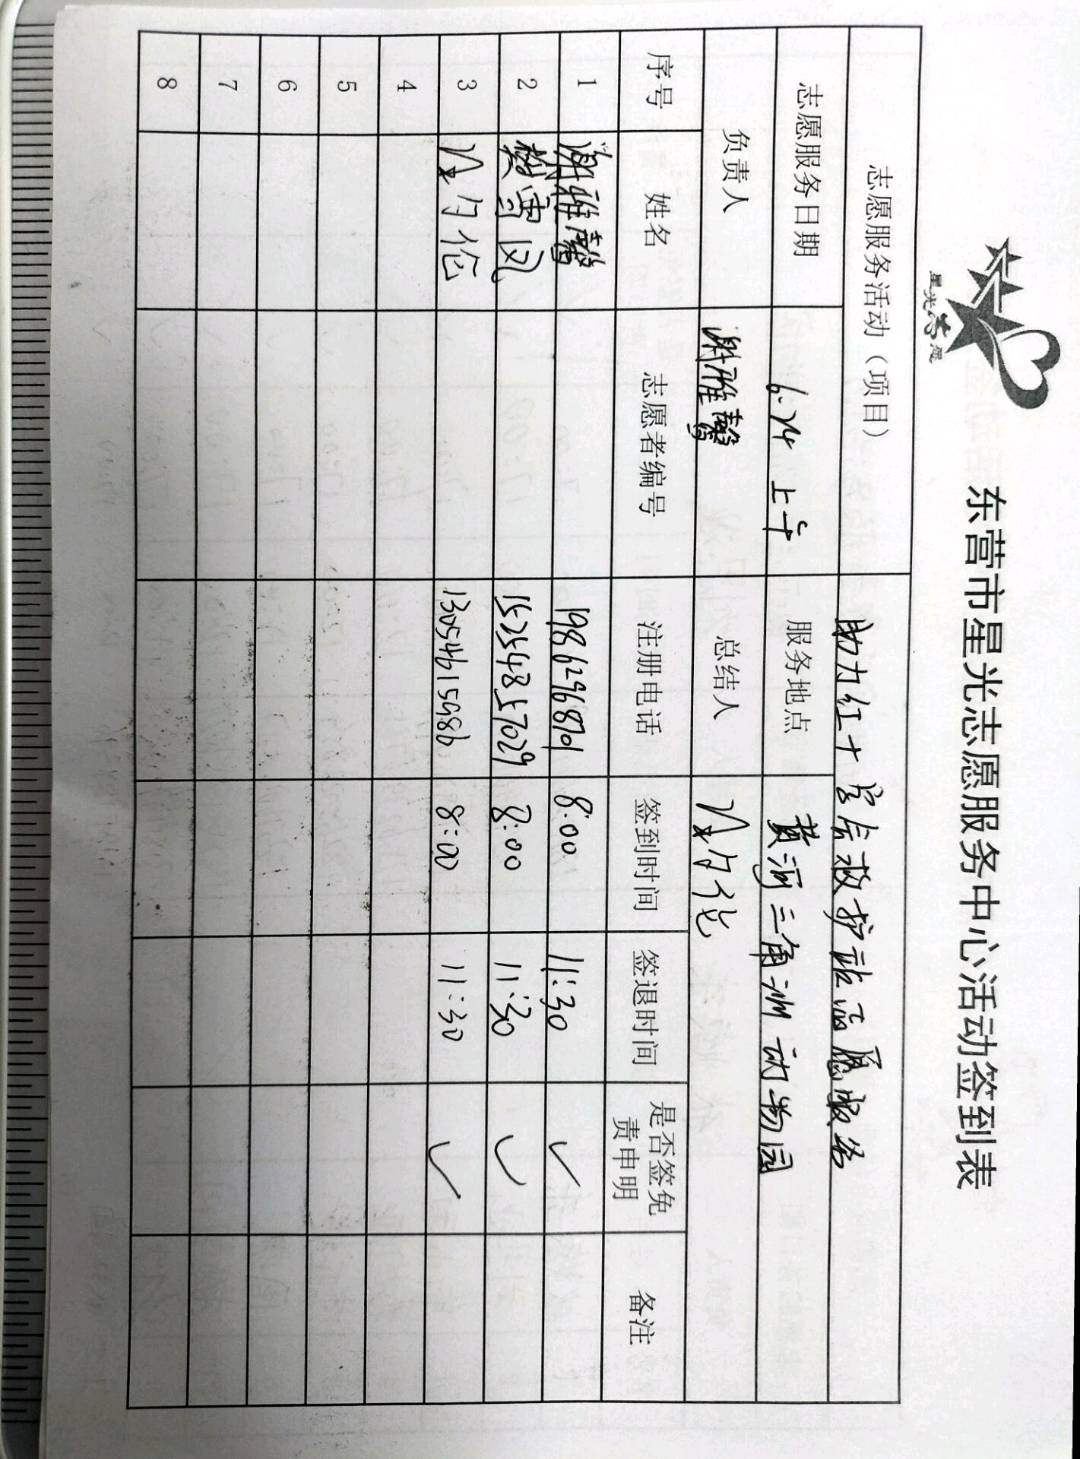 星光志愿
东营市星光志愿服务中心活动签到表
志愿服务活动（项目） 助力红十字会救护站志愿服务
志愿服务日期 6.24 上午 服务地点 黄河三角洲动物园
负责人 谢雅馨 总结人
序号 姓名 志愿者编号 注册电话 签到时间 签退时间 是否签免责申明 备注
1 谢雅馨 19862968701 8:00 11:30 ✓
2 樊雪凤 157254857029 8:00 11:30 ✓
3 13054615986 8:00 11:30 ✓
4
5
6
7
8